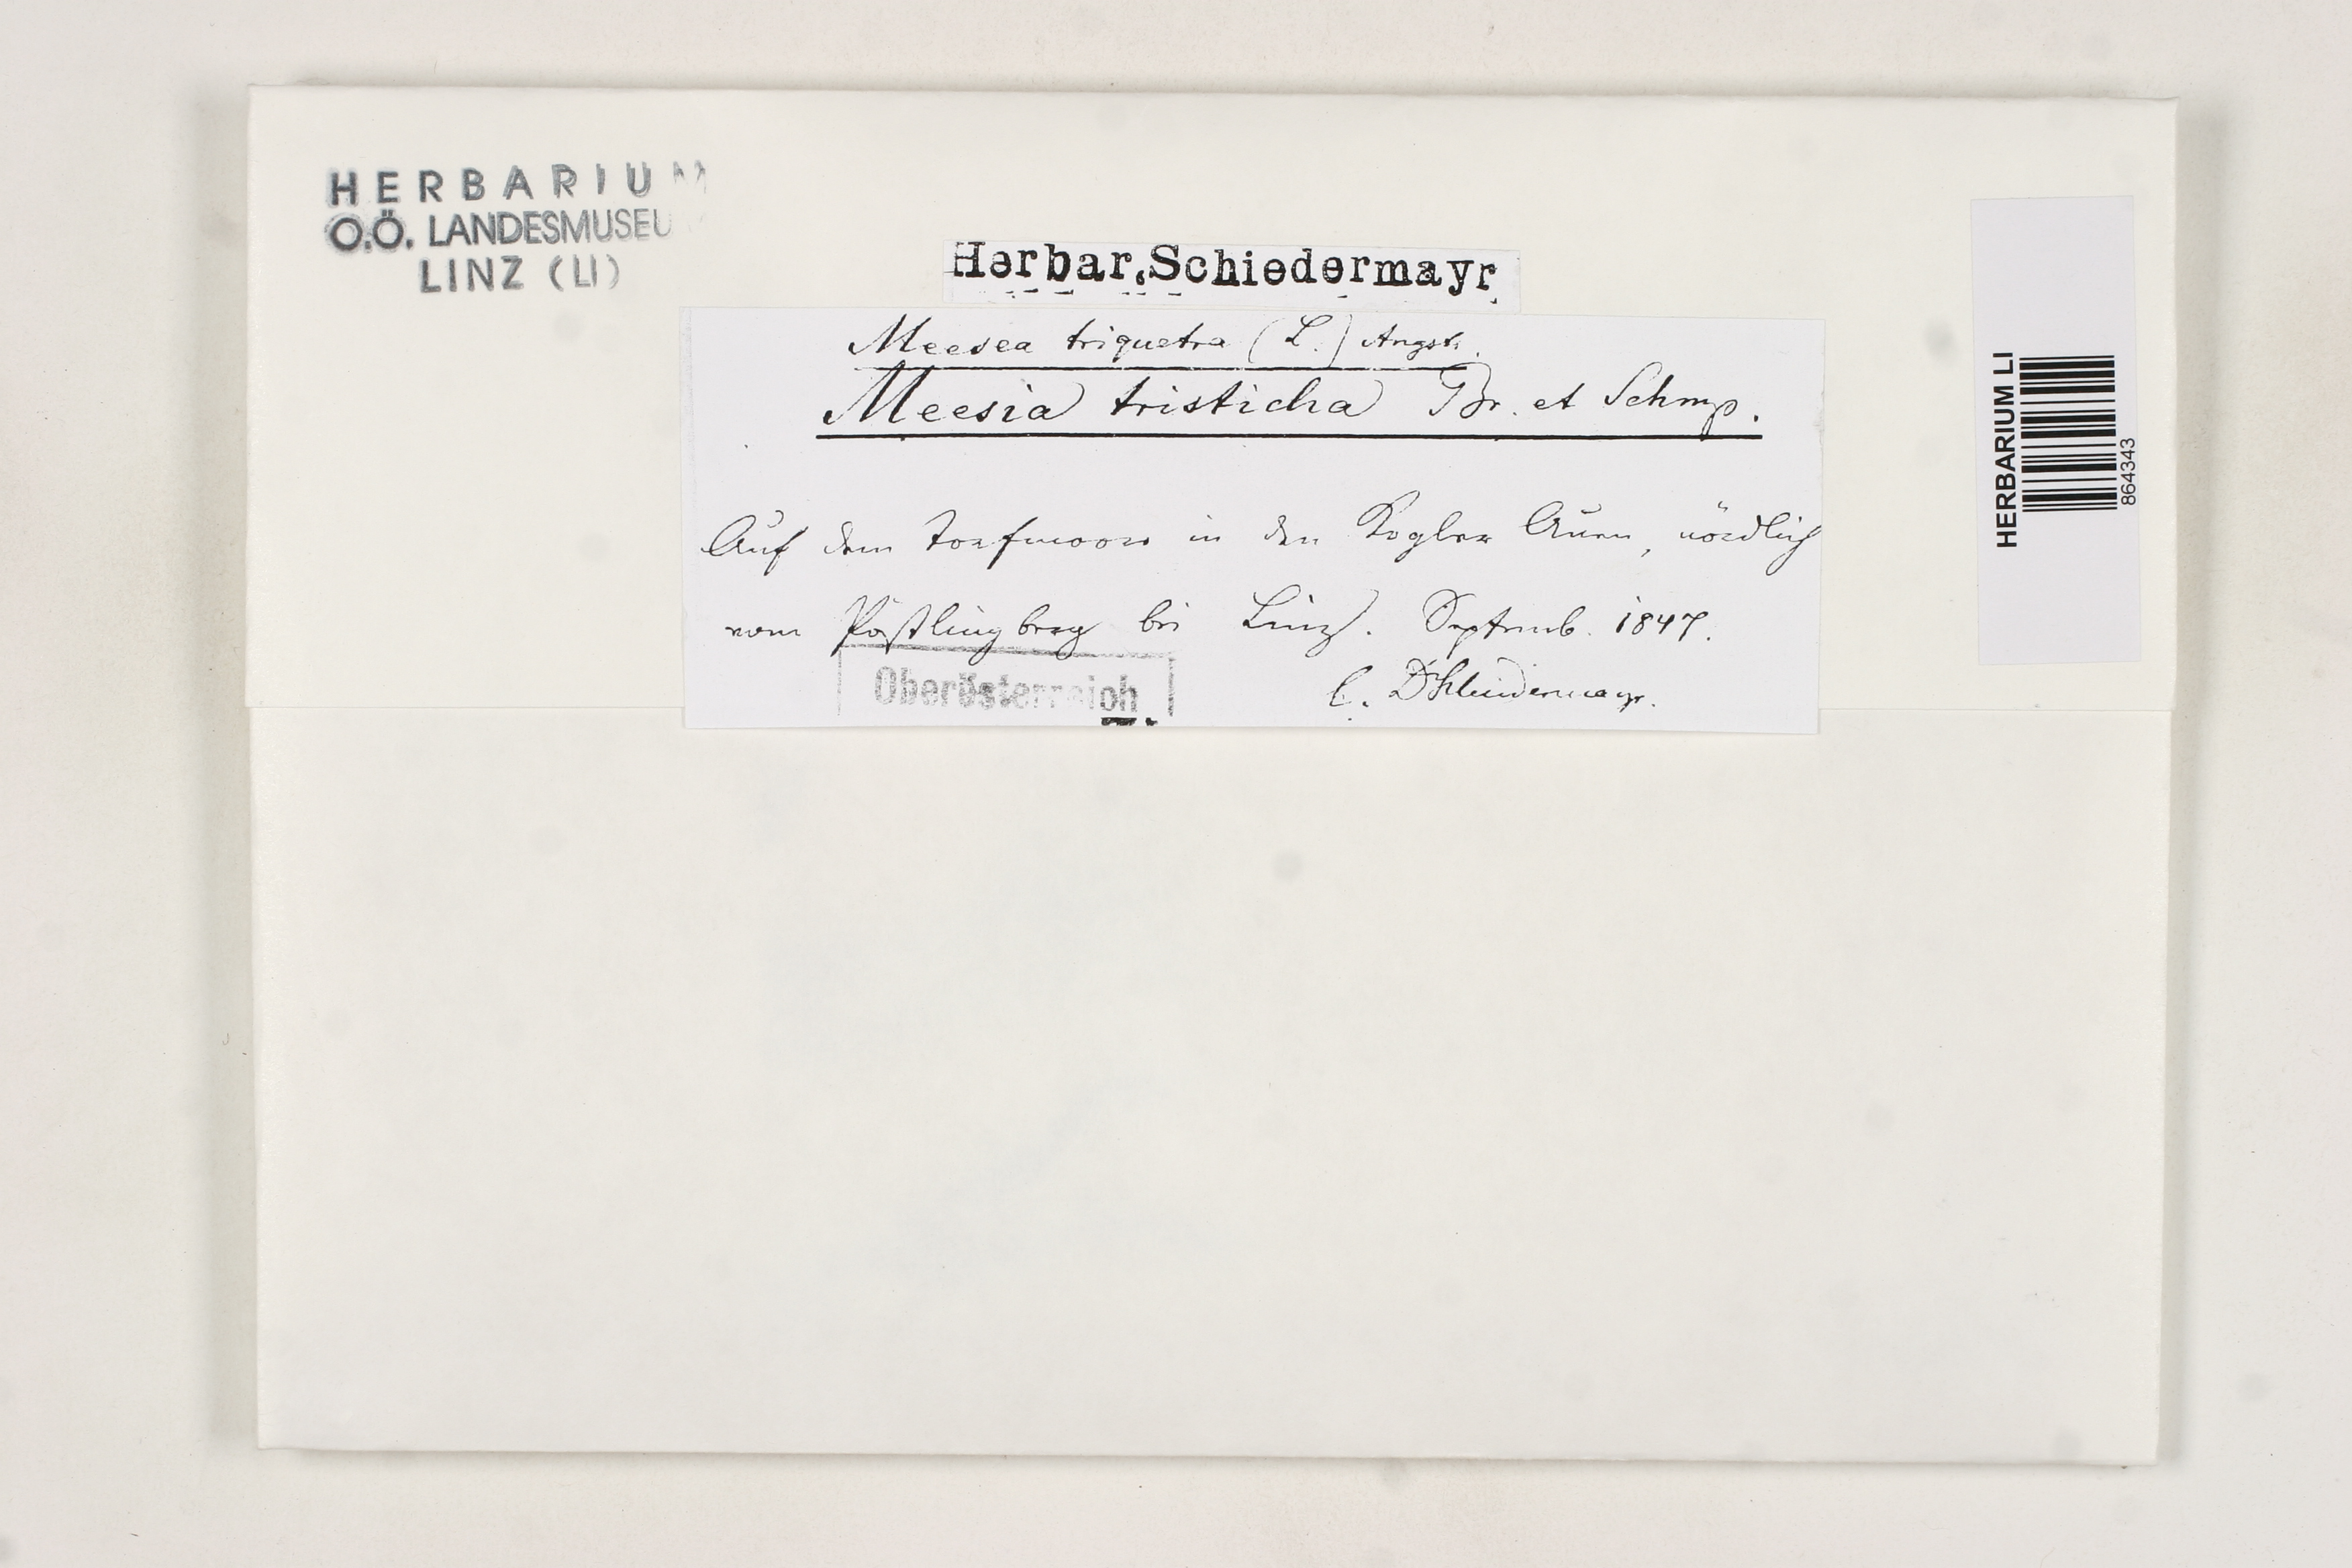 HERBARIUM
O.Ö. LANDESMUSEU
LINZ (LI)
Herbar. Schiedermayr
Meesea triquetra (L.) Angstr.
Meesia tristicha Br. et Schmp.
Auf dem Torfmoore in den Kogler Auen, nördlich
vom Pöstlingberg bei Linz. Septemb. 1847.
Oberösterreich
C. Dr Schiedermayr.
HERBARIUM LI
864343